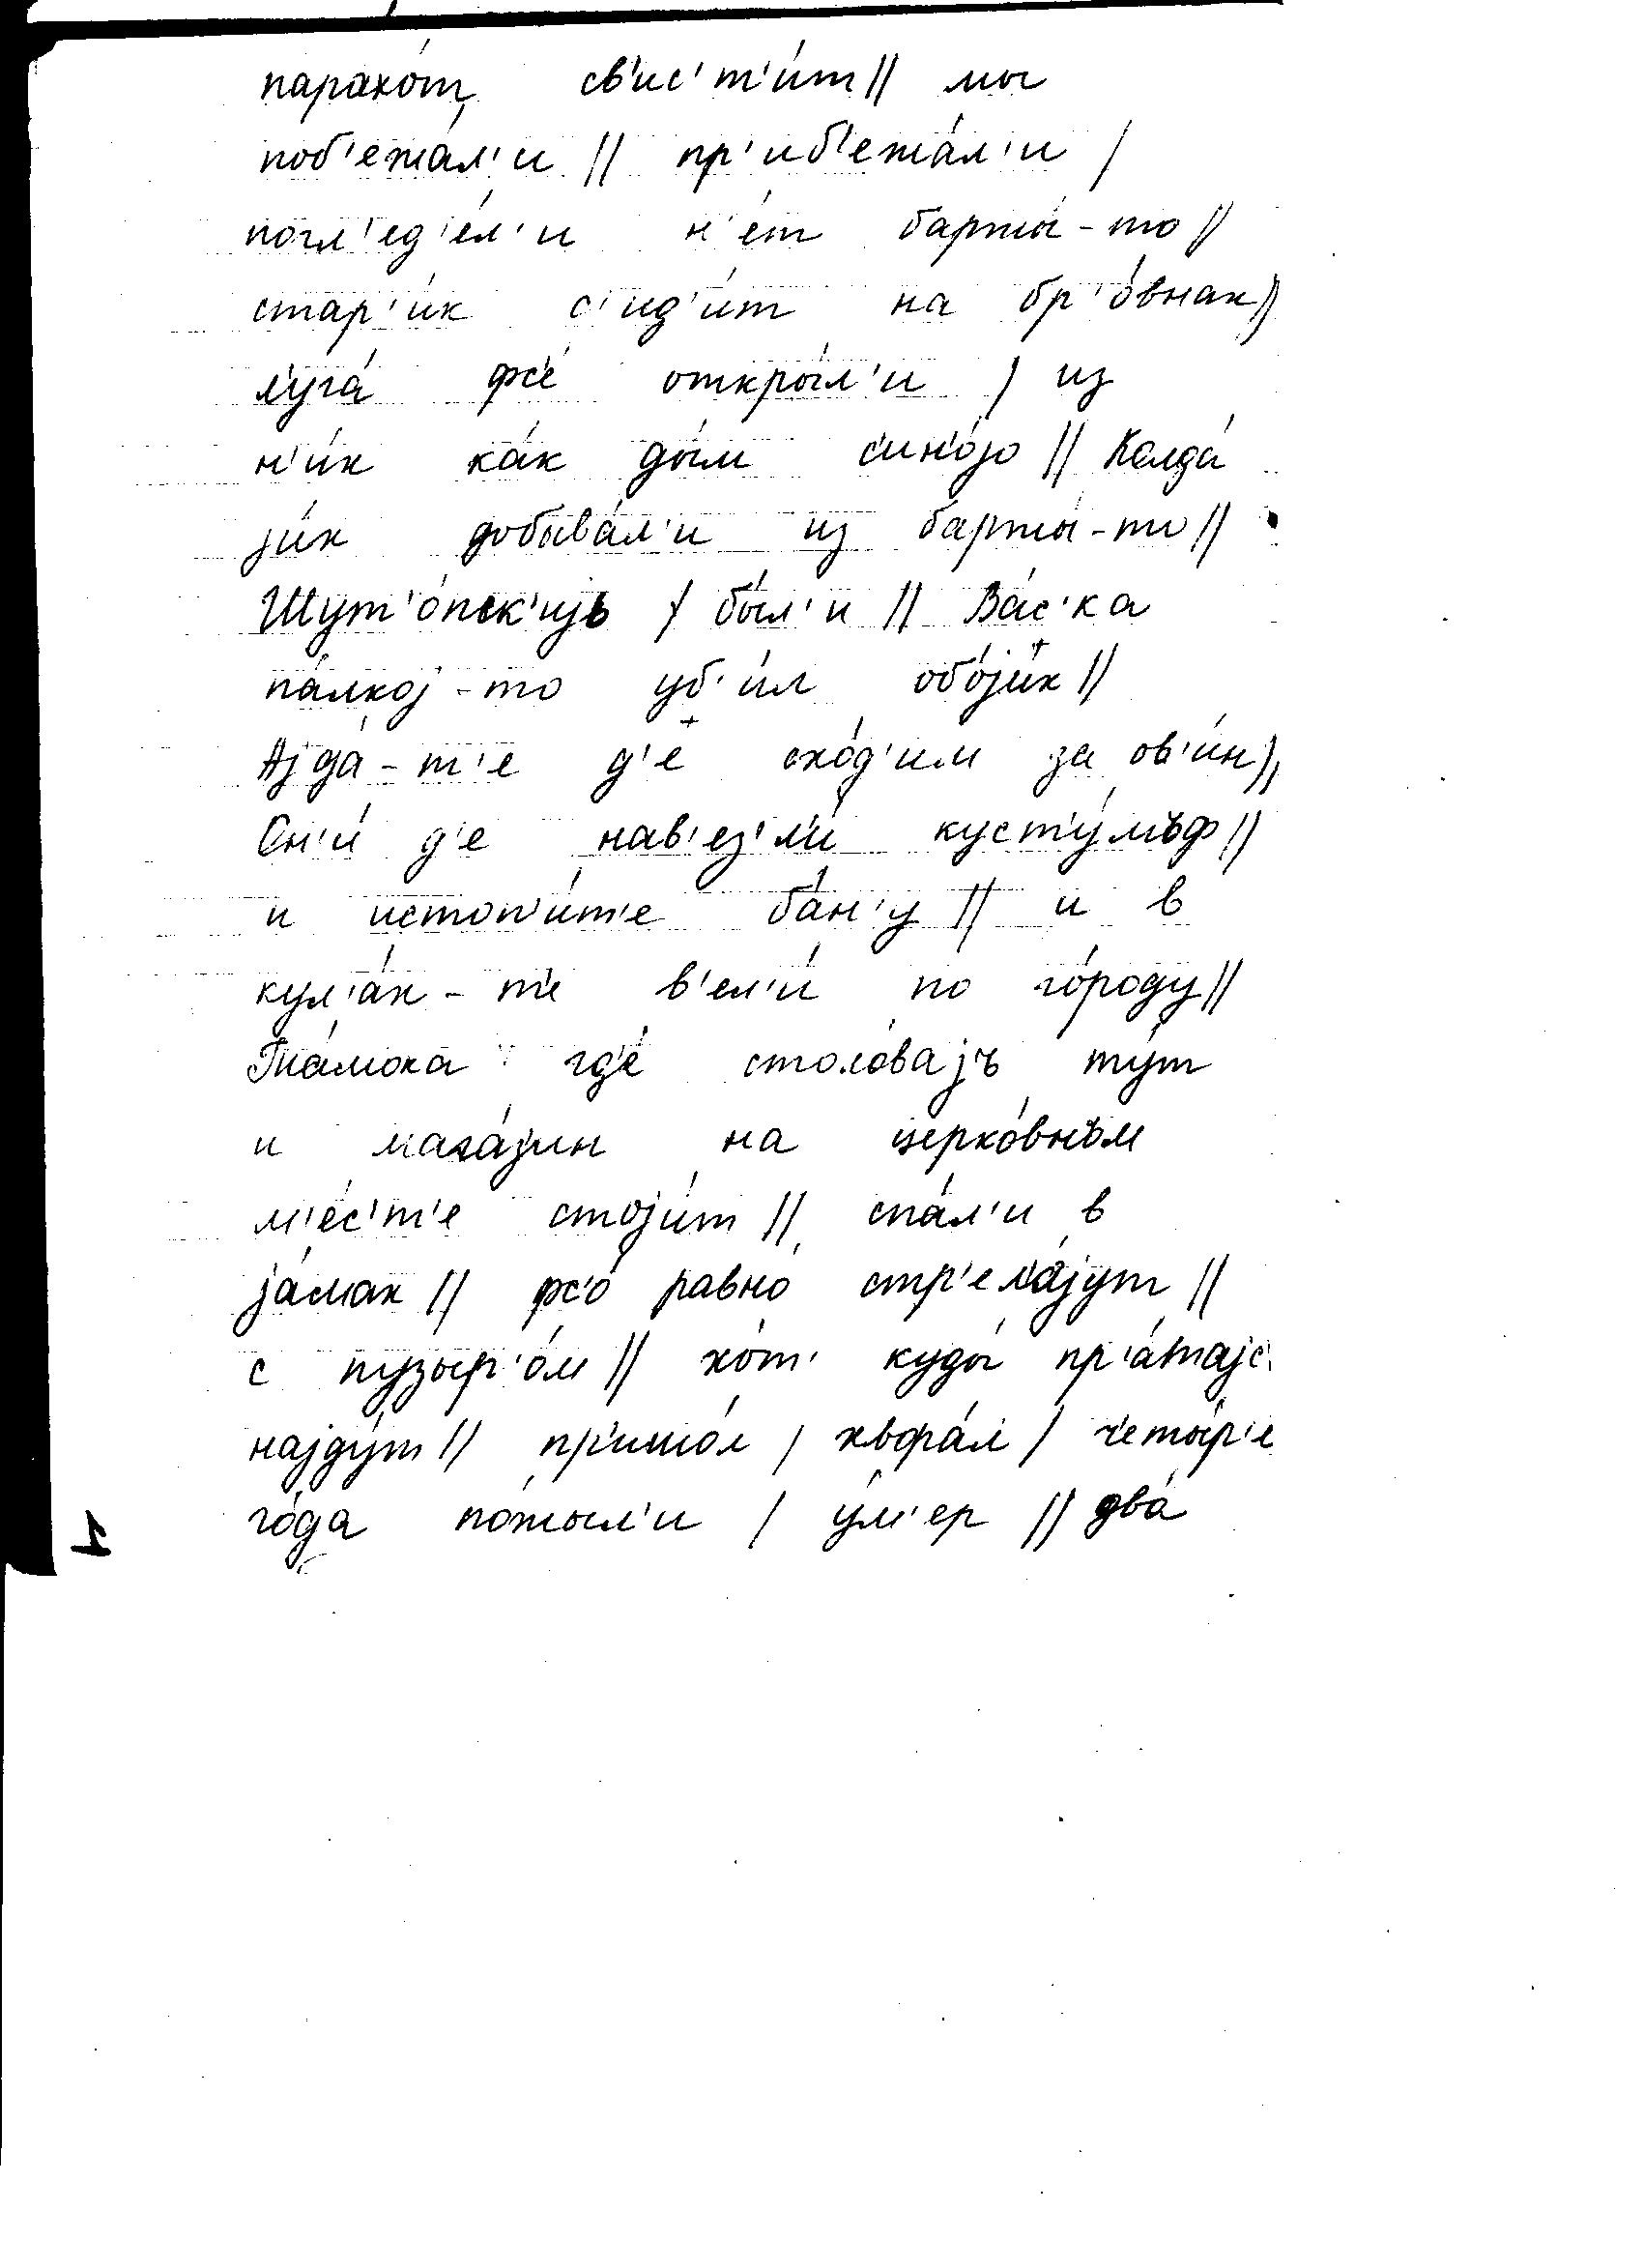 парахо́т св'ис'т'и́т // мы
поб'ежа́л'и // пр'иб'ежа́л'и /
погл'ед'е́л'и н'е́т баржы́-то //
стар'и́к с'ид'и́т на бр'о́внах //
луга́ фс'е́ откры́л'и / из
н'и́х ка́к ды́м с'ин'о́jо // Когда́
jи́х добыва́л'и из баржы́-то //
Шут'о́пск'иjь / бы́л'и // Ва́с'ка
па́лкоj-то уб'и́л обо́jи́х //
Аjда́-т'е д'е схо́д'им за ов'и́н //
Он'и́ д'е нав'ез'л'и́ куст'у́мъф //
и истоп'и́т'е ба́н'у // и в
кул'а́х-т'е в'ел'и́ по го́роду //
Та́мока гд'е́ столо́ваjъ ту́т
и мага́зин на церко́внъм
м'е́с'т'е стоjи́т // спа́л'и в
jа́мах // фс'о́ равно́ стр'ел'а́jут //
с пузыр'о́м // хо́т' куды́ пр'а́таjс'
наjду́т // пр'ишо́л / хвора́л / ч'еты́р'е
го́да по́жыл'и / у́м'ер // два́
1